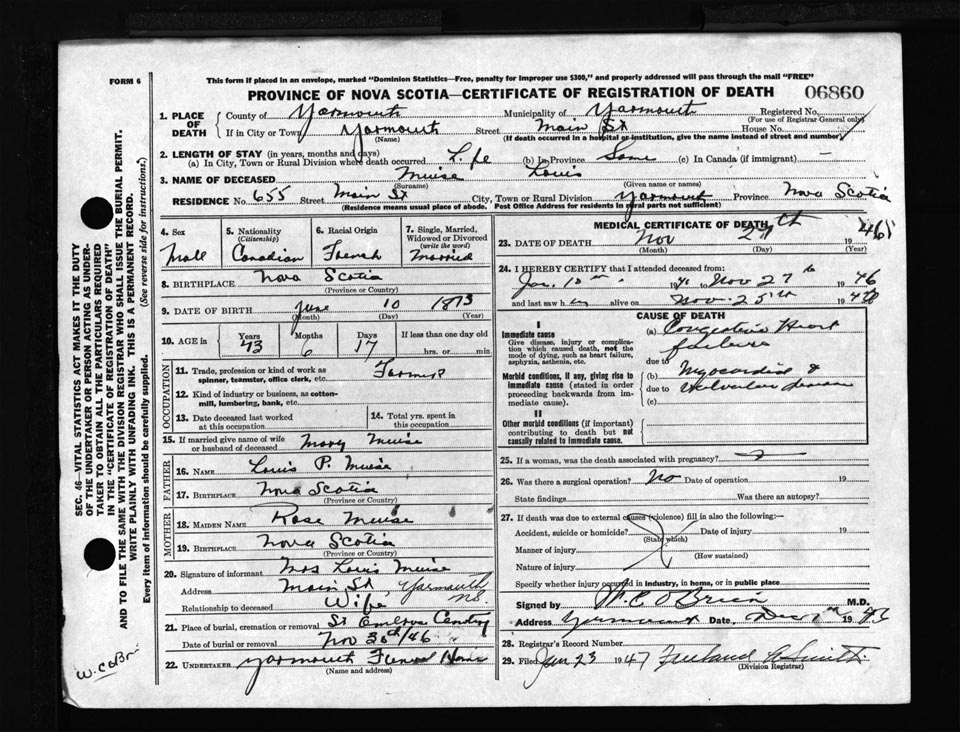 FORM 6
This form if placed in an envelope, marked "Dominion Statistics—Free, penalty for improper use $300," and properly addressed will pass through the mail "FREE"
PROVINCE OF NOVA SCOTIA—CERTIFICATE OF REGISTRATION OF DEATH 06860
1. PLACE OF DEATH County of Yarmouth Municipality of Yarmouth Registered No.
(For use of Registrar General only)
If in City or Town Yarmouth Street Main St House No.
(Name) (If death occurred in a hospital or institution, give name instead of street and number)
2. LENGTH OF STAY (in years, months and days)
(a) In City, Town or Rural Division where death occurred Life (b) In Province Same (c) In Canada (if immigrant) —
3. NAME OF DECEASED Muise Louis
(Surname) (Given name or names)
RESIDENCE No. 655 Street Main St City, Town or Rural Division Yarmouth Province Nova Scotia
(Residence means usual place of abode. Post Office Address for residents in rural parts not sufficient)
4. Sex Male
5. Nationality (Citizenship) Canadian
6. Racial Origin French
7. Single, Married, Widowed or Divorced (write the word) Married
8. BIRTHPLACE Nova Scotia
(Province or Country)
9. DATE OF BIRTH June 10 1873
(Month) (Day) (Year)
10. AGE in Years 73 Months 6 Days 17 If less than one day old hrs. or min
OCCUPATION
11. Trade, profession or kind of work as spinner, teamster, office clerk, etc. Farmer
12. Kind of industry or business, as cotton-mill, lumbering, bank, etc.
13. Date deceased last worked at this occupation
14. Total yrs. spent in this occupation
15. If married give name of wife or husband of deceased Mary Muise
FATHER
16. NAME Louis P. Muise
17. BIRTHPLACE Nova Scotia
(Province or Country)
MOTHER
18. MAIDEN NAME Rose Muise
19. BIRTHPLACE Nova Scotia
(Province or Country)
20. Signature of informant Mrs Louis Muise
Address Main St, Yarmouth N.S.
Relationship to deceased Wife
21. Place of burial, cremation or removal St
Date of burial or removal Nov 30th/46
22. UNDERTAKER Yarmouth Funeral Home
(Name and address)
MEDICAL CERTIFICATE OF DEATH
23. DATE OF DEATH Nov 27th 1946
(Month) (Day) (Year)
24. I HEREBY CERTIFY that I attended deceased from:
Jan. 19 to Nov 27th 1946
and last saw h alive on Nov. 25th 1946
CAUSE OF DEATH
I
Immediate cause
Give disease, injury or complication which caused death, not the mode of dying, such as heart failure, asphyxia, asthenia, etc.
(a) Congestive Heart failure
due to
Morbid conditions, if any, giving rise to immediate cause (stated in order proceeding backwards from immediate cause).
(b) Myocardial &
due to Valvular disease
(c)
II
Other morbid conditions (if important) contributing to death but not causally related to immediate cause.
25. If a woman, was the death associated with pregnancy?
26. Was there a surgical operation? No Date of operation 19
State findings Was there an autopsy?
27. If death was due to external causes (violence) fill in also the following:—
Accident, suicide or homicide? Date of injury 19
(State which)
Manner of injury
(How sustained)
Nature of injury
Specify whether injury occurred in industry, in home, or in public place
Signed by W. C. O'Brien M.D.
Address Yarmouth Date, Dec 19
28. Registrar's Record Number
29. Filed Jan 23 1947 Smith
(Division Registrar)
SEC. 46—VITAL STATISTICS ACT MAKES IT THE DUTY
OF THE UNDERTAKER OR PERSON ACTING AS UNDER-
TAKER TO OBTAIN ALL THE PARTICULARS REQUIRED
IN THE "CERTIFICATE OF REGISTRATION OF DEATH"
AND TO FILE THE SAME WITH THE DIVISION REGISTRAR WHO SHALL ISSUE THE BURIAL PERMIT.
WRITE PLAINLY WITH UNFADING INK. THIS IS A PERMANENT RECORD.
Every item of information should be carefully supplied. (See reverse side for instructions.)